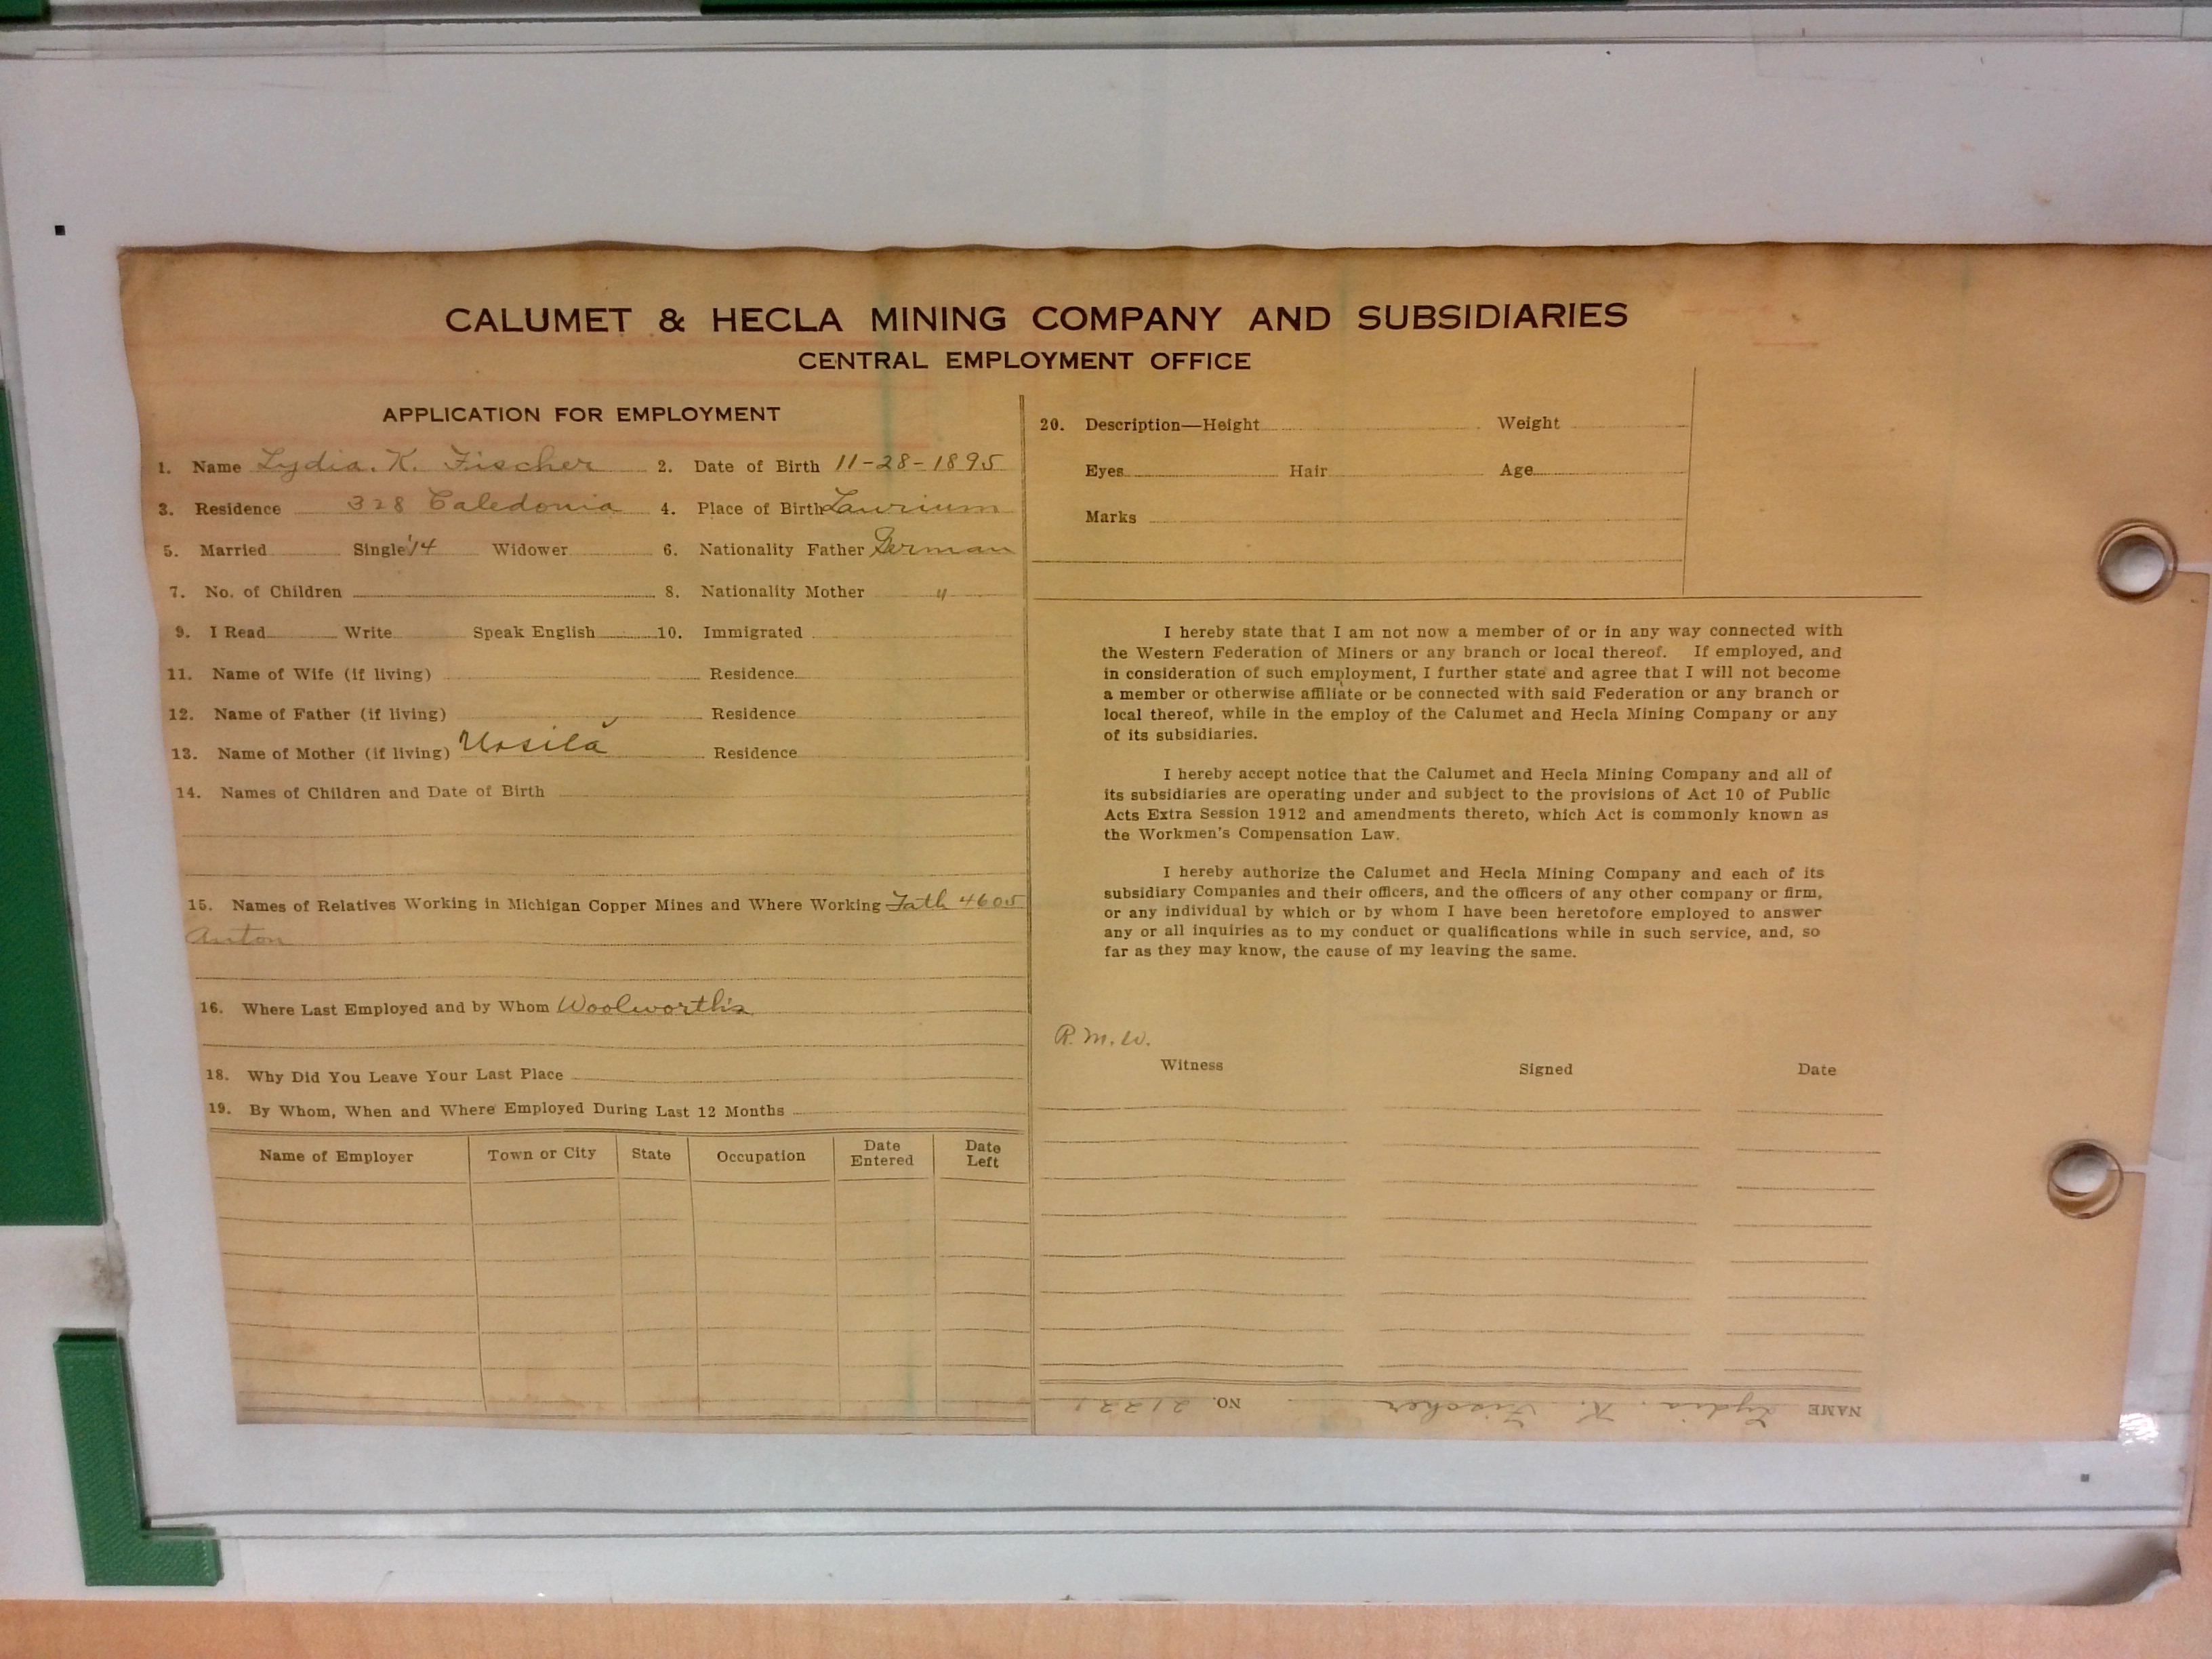 CALUMET & HECLA MINING COMPANY AND SUBSIDIARIES
CENTRAL EMPLOYMENT OFFICE
APPLICATION FOR EMPLOYMENT
1. Name Lydia. K. Fischer 2. Date of Birth 11-28-1895
3. Residence 328 Caledonia 4. Place of Birth Laurium
5. Married Single '14 Widower 6. Nationality Father German
7. No. of Children 8. Nationality Mother "
9. I Read Write Speak English 10. Immigrated
11. Name of Wife (if living) Residence
12. Name of Father (if living) Residence
13. Name of Mother (if living) Ursila Residence
14. Names of Children and Date of Birth
15. Names of Relatives Working in Michigan Copper Mines and Where Working Fath 4605
Anton
16. Where Last Employed and by Whom Woolworth's
18. Why Did You Leave Your Last Place
19. By Whom, When and Where Employed During Last 12 Months
Name of Employer Town or City State Occupation Date Entered Date Left
20. Description—Height Weight
Eyes Hair Age
Marks
I hereby state that I am not now a member of or in any way connected with
the Western Federation of Miners or any branch or local thereof. If employed, and
in consideration of such employment, I further state and agree that I will not become
a member or otherwise affiliate or be connected with said Federation or any branch or
local thereof, while in the employ of the Calumet and Hecla Mining Company or any
of its subsidiaries.
I hereby accept notice that the Calumet and Hecla Mining Company and all of
its subsidiaries are operating under and subject to the provisions of Act 10 of Public
Acts Extra Session 1912 and amendments thereto, which Act is commonly known as
the Workmen's Compensation Law.
I hereby authorize the Calumet and Hecla Mining Company and each of its
subsidiary Companies and their officers, and the officers of any other company or firm,
or any individual by which or by whom I have been heretofore employed to answer
any or all inquiries as to my conduct or qualifications while in such service, and, so
far as they may know, the cause of my leaving the same.
R. M. W.
Witness Signed Date
NAME Lydia. K. Fischer NO. 21221